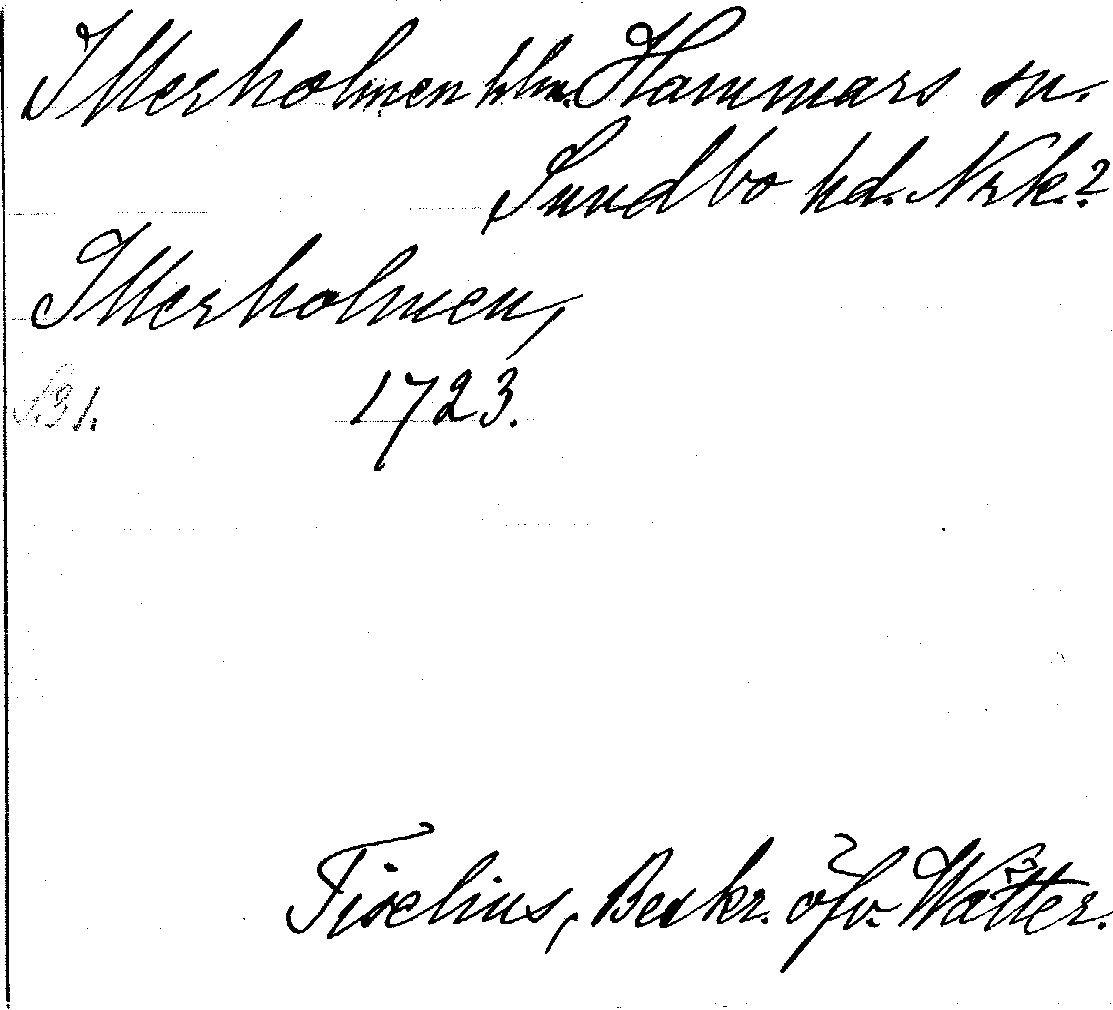 Illerholmen hlm. Hammars sn.
Sundbo hd. Nrk.?
Illerholmen,
S. 31. 1723.
Tiselius, Beskr. öfv. Wätter.